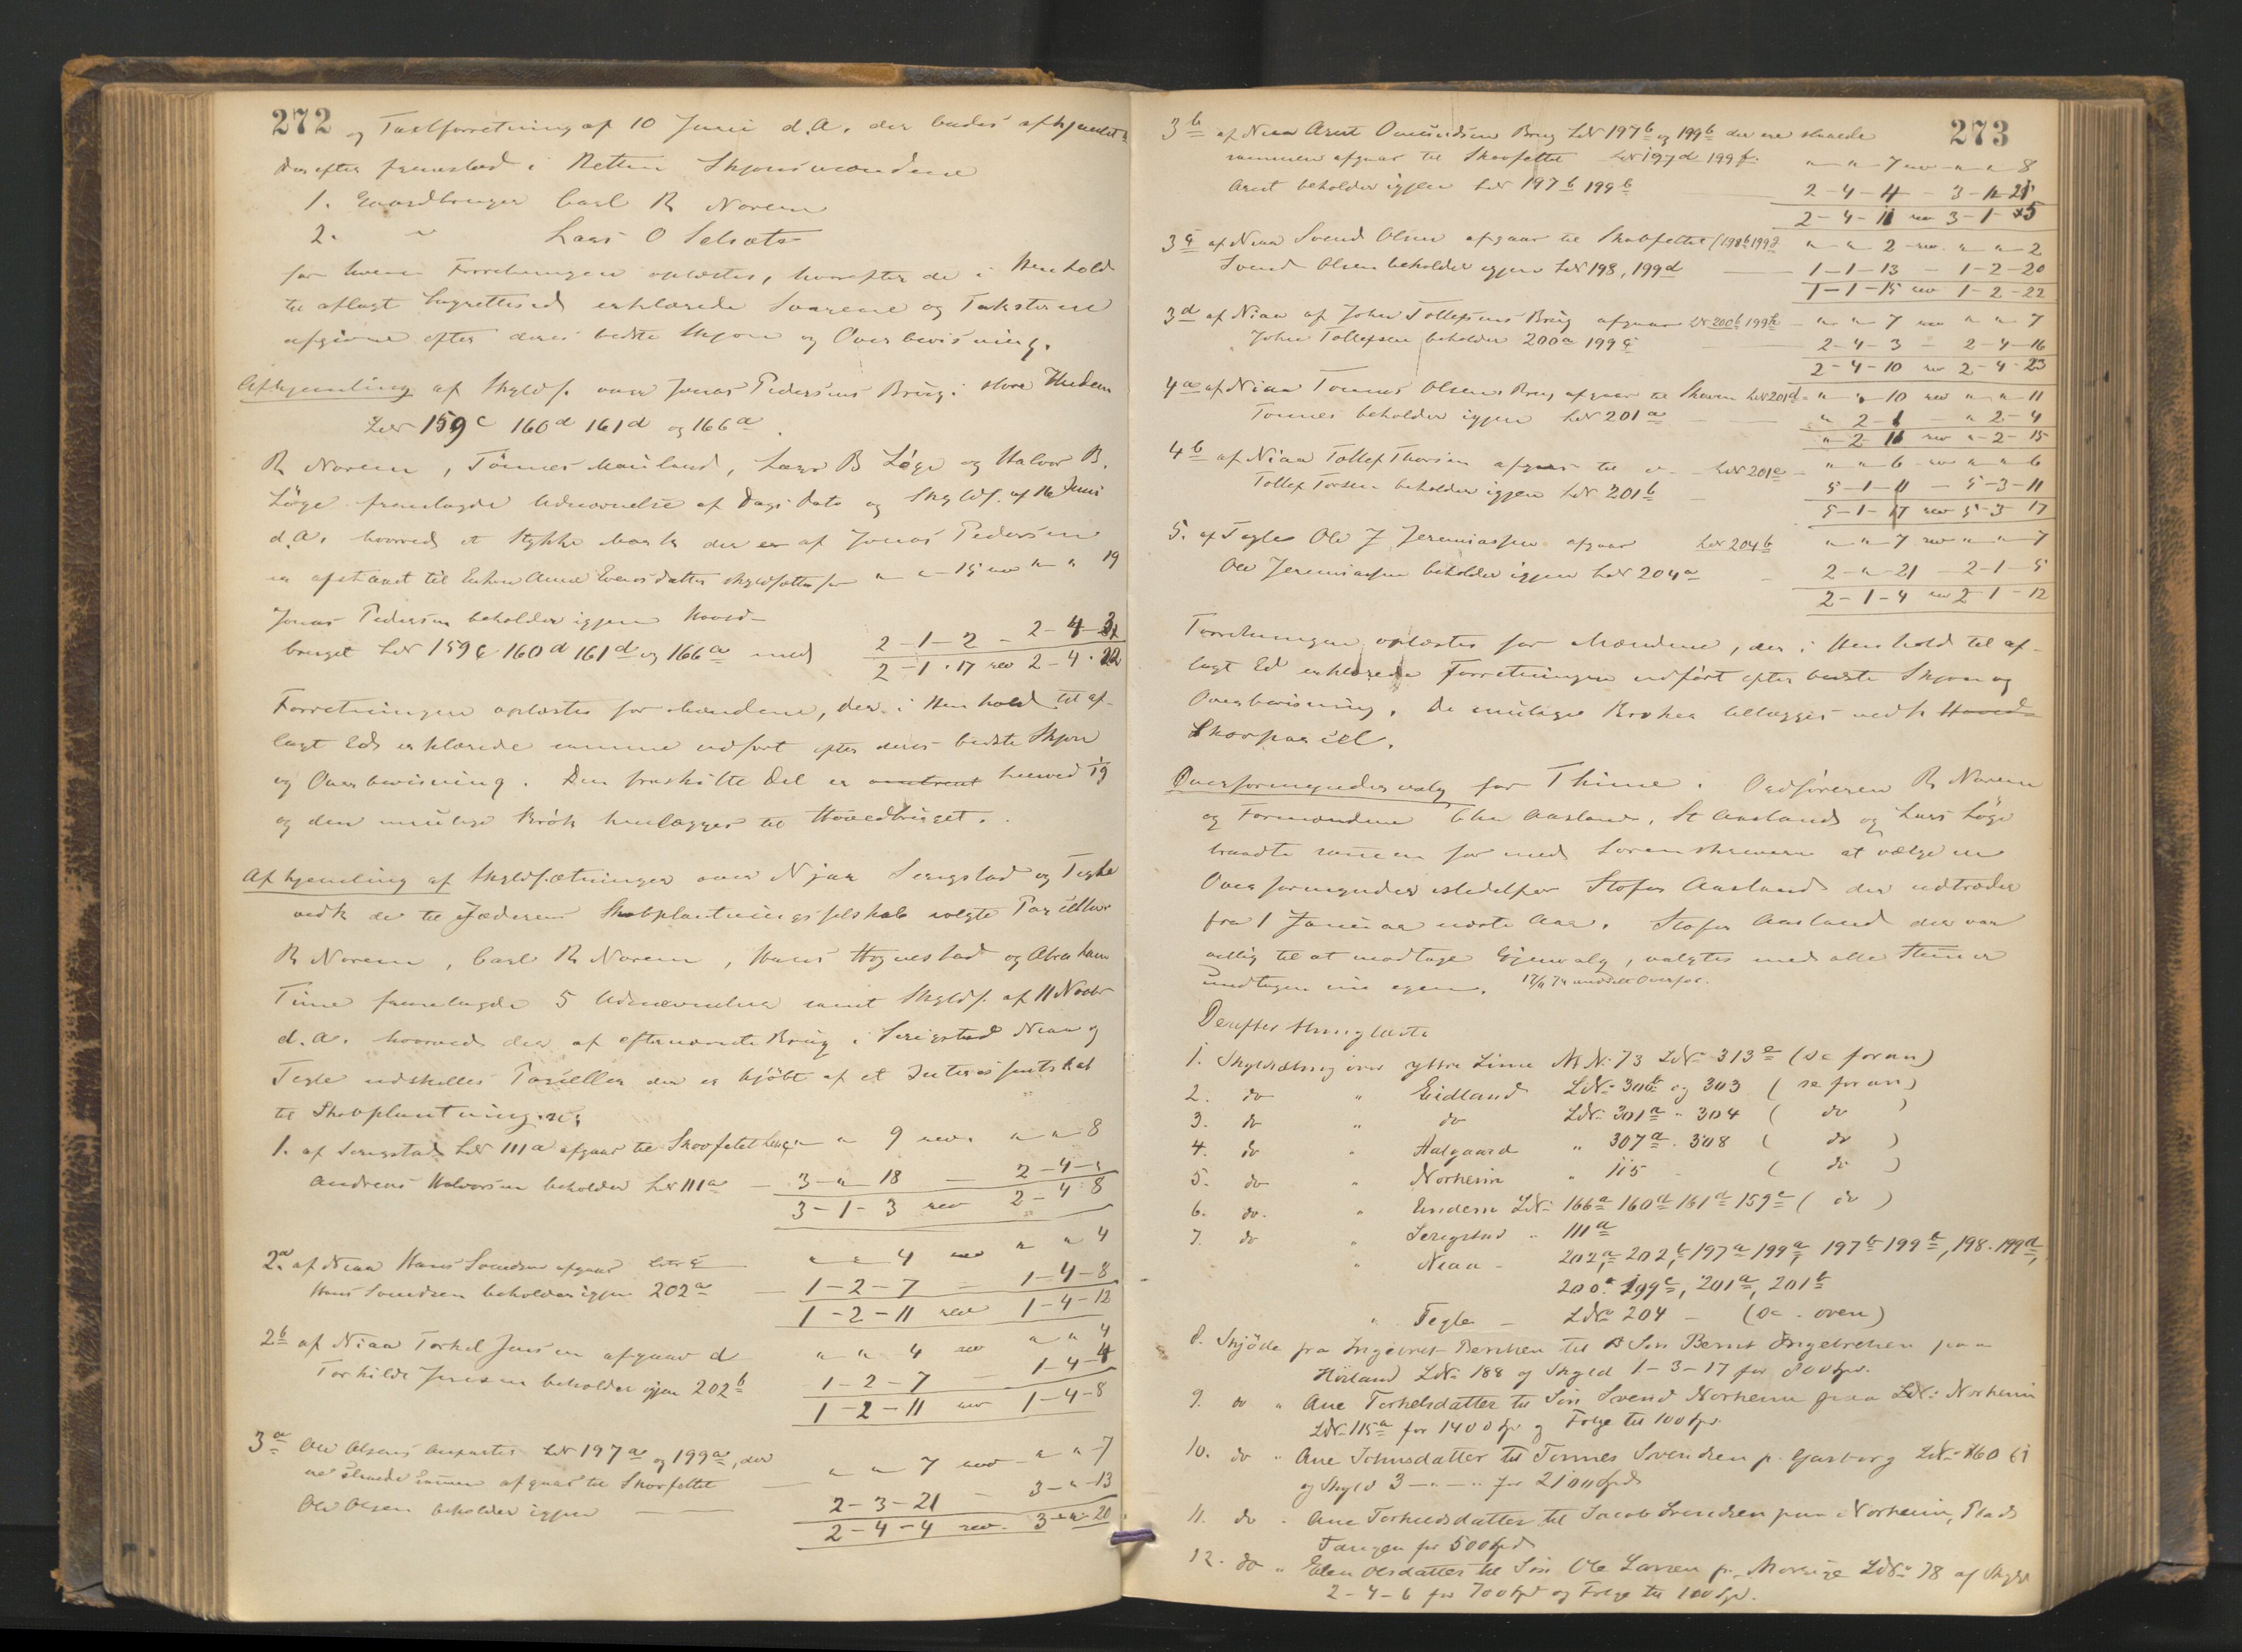 272
og Taxtforretning af 10 Juni d.A. der bades afhjemlet
Derefter fremstod i Retten Skjønsmændene
1. Gaardbruger Carl R Norem
2. " Lars O
for hvem Forretningen oplæstes, hvorefter de i Henhold
til aflagt Lagretteed erklærede Svarene og Taksterne
afgivne efter deres bedste Skjøn og Overbevisning.
Afhjemling af Skyldf. over Jonas Pedersens Brug i store Undem
LN 159 c 160 d 161 d og 166 a.
R Norem, Tönnes Mauland, Lars B Löge og Halvor B.
Löge fremlagde Udnævnelse af Dags Dato og Skyldf. af 16 Juni
d.A. hvorved et Stykke Mark der er af Jonas Pedersen
er afstaaet til Enken Anne Evensdatter skyldsattes for " " 15 rev " " 19
Jonas Pedersen beholder igjen Hoved-
bruget LN 159 c 160 d 161 d og 166 a med 2-1-2 - 2-4-3
2-1-17 rev 2-4-22
Forretningen oplæstes for Mændene, der i Henhold til af-
lagt Ed erklærede samme udfört efter deres bedste Skjøn
og Overbevisning. Den fraskilte Del er omtrent herved
og den mulige Brök henlægges til Hovedbruget.
Afhjemling af Skyldsætninger over Njaa Serigstad og Tegle
vedk de til Jæderens Skovplantningsselskab solgte Parceller
R Norem, Carl R Norem, Hans Hognestad og Abraham
Time fremlagde 5 Udnævnelser samt Skyldf. af 11 Novbr
d.A. hvorved der af efternævnte Brug i Serigstad Niaa og
Tegle udskilles Parceller der er kjöbt af et Interessentskab
til Skovplantning.
1. af Serigstad LN 111 a afgaar til Skovfeltet " " 9 rev. " " 8
Andreas Halvorsen beholder LN 111 a - 3-"-18 - 2-4-"
3-1-3 rev 2-4-8
2 a. af Niaa Hans Svendsen afgaar " " 4 rev " " 4
Hans Svendsen beholder igjen 202 a - 1-2-7 - 1-4-8
1-2-11 rev 1-4-12
2 b af Niaa Torkel Jensen afgaar d " " 4 rev " " 4
Torkild Jensen beholder igjen 202 b 1-2-7 - 1-4-4
1-2-11 rev 1-4-8
3 a Ole Olsens Anparter LN 197 a og 199 a, der
ere skuede sammen afgaar til Skovfeltet " " 7 rev " " 7
Ole Olsen beholder igjen - 2-3-21 - 3-"-13
2-4-4 rev. 3-"-20
273
3 b af Niaa Arent Omundsens Brug LN 197 b og 199 b der ere skuede
sammen afgaar til Skovfeltet LN 197 d 199 f. " " 7 rev " " 8
Arent beholder igjen LN 197 b 199 b 2-4-4 - 3-"-21
2-4-11 rev 3-1-5
3 c af Niaa Svend Olsen afgaar til Skovfeltet (198 b 199 g " " 2 rev. " " 2
Svend Olsen beholder igjen LN 198, 199 d 1-1-13 - 1-2-20
1-1-15 rev 1-2-22
3 d af Niaa af John Tollefsens Brug afgaar LN 200 b 199 h " " 7 rev " " 7
John Tollefsen beholder 200 a 199 c 2-4-3 - 2-4-16
2-4-10 rev 2-4-23
4 a af Niaa Tönnes Olsens Brug afgaar til Skoven LN 201 d " " 10 rev " " 11
Tönnes beholder igjen LN 201 a " 2-1 " 2-4
" 2-11 rev " 2-15
4 b af Niaa Tollef Thorsen afgaar til " LN 201 e " " 6 rev " " 6
Tollef Torsen beholder igjen LN 201 b 5-1-11 - 5-3-11
5-1-17 rev 5-3 17
5. af Tegle Ole J Jeremiassen afgaar LN 204 b " " 7 rev " " 7
Ole Jeremiassen beholder igjen LN 204 a - 2-"-21 - 2-1-5
2-1-4 rev 2-1-12
Forretningen oplæstes for Mændene, der i Henhold til af-
lagt Ed erklærede Forretningen udfört efter bedste Skjøn og
Overbevisning. De mulige Bröker tillægges vedk Hoved-
Skovparcel.
Overformyndervalg for Thime. Ordföreren R Norem
og Formændene Aasland, St Aasland og Lars Löge
traadte sammen for med Sorenskriveren at vælge en
Overformynder istedetfor Stofer Aasland der udtræder
fra 1 Januar næste Aar. Stofer Aasland der var
villig til at modtage Gjenvalg, valgtes med alle Stemmer
undtagen sin egen.
Derefter thinglæste
1. Skyldsætning over yttre Lima MN. 73 LN. 313 e (se foran)
2. do " Eidland LN. 300 b og 303 (se foran)
3. do " do LN. 301 a " 304 ( do )
4. do " Aalgaard " 307 a. 308 ( do )
5. do " Norheim " 115 - ( do )
6. do. " Undem LN. 166 a 160 d 161 d 159 c ( do )
7. do " Serigstad " 111 a
" Niaa - 202 a, 202 b, 197 a 199 a, 197 b 199 b, 198. 199 d,
200 a 199 c, 201 a, 201 b
" Tegle - LN 204 - (se oven)
8. Skjöde fra Ingebret Berntsen til Sön Bernt Ingebretsen paa
Hörland LN. 188 og Skyld 1-3-17 for 800 Spd.
9. do " Ane Torkelsdatter til Sön Svend Norheim paa LN. Norheim
LN. 115 a for 1400 Spd og Folge til 100 Spd.
10. do " Ane Johnsdatter til Tönnes Svendsen p. Garborg LN. 160 61
og Skyld 3-"-" for 2100 Spd
11. do " Ane Torkelsdatter til Jacob Svendsen paa Norheim, Plads
Tangen for 500 Spd
12. do " Elen Olsdatter til Sön Ole Larsen p. LN. 78 af Skyld
2-4-6 for 700 Spd og Folge til 100 Spd.